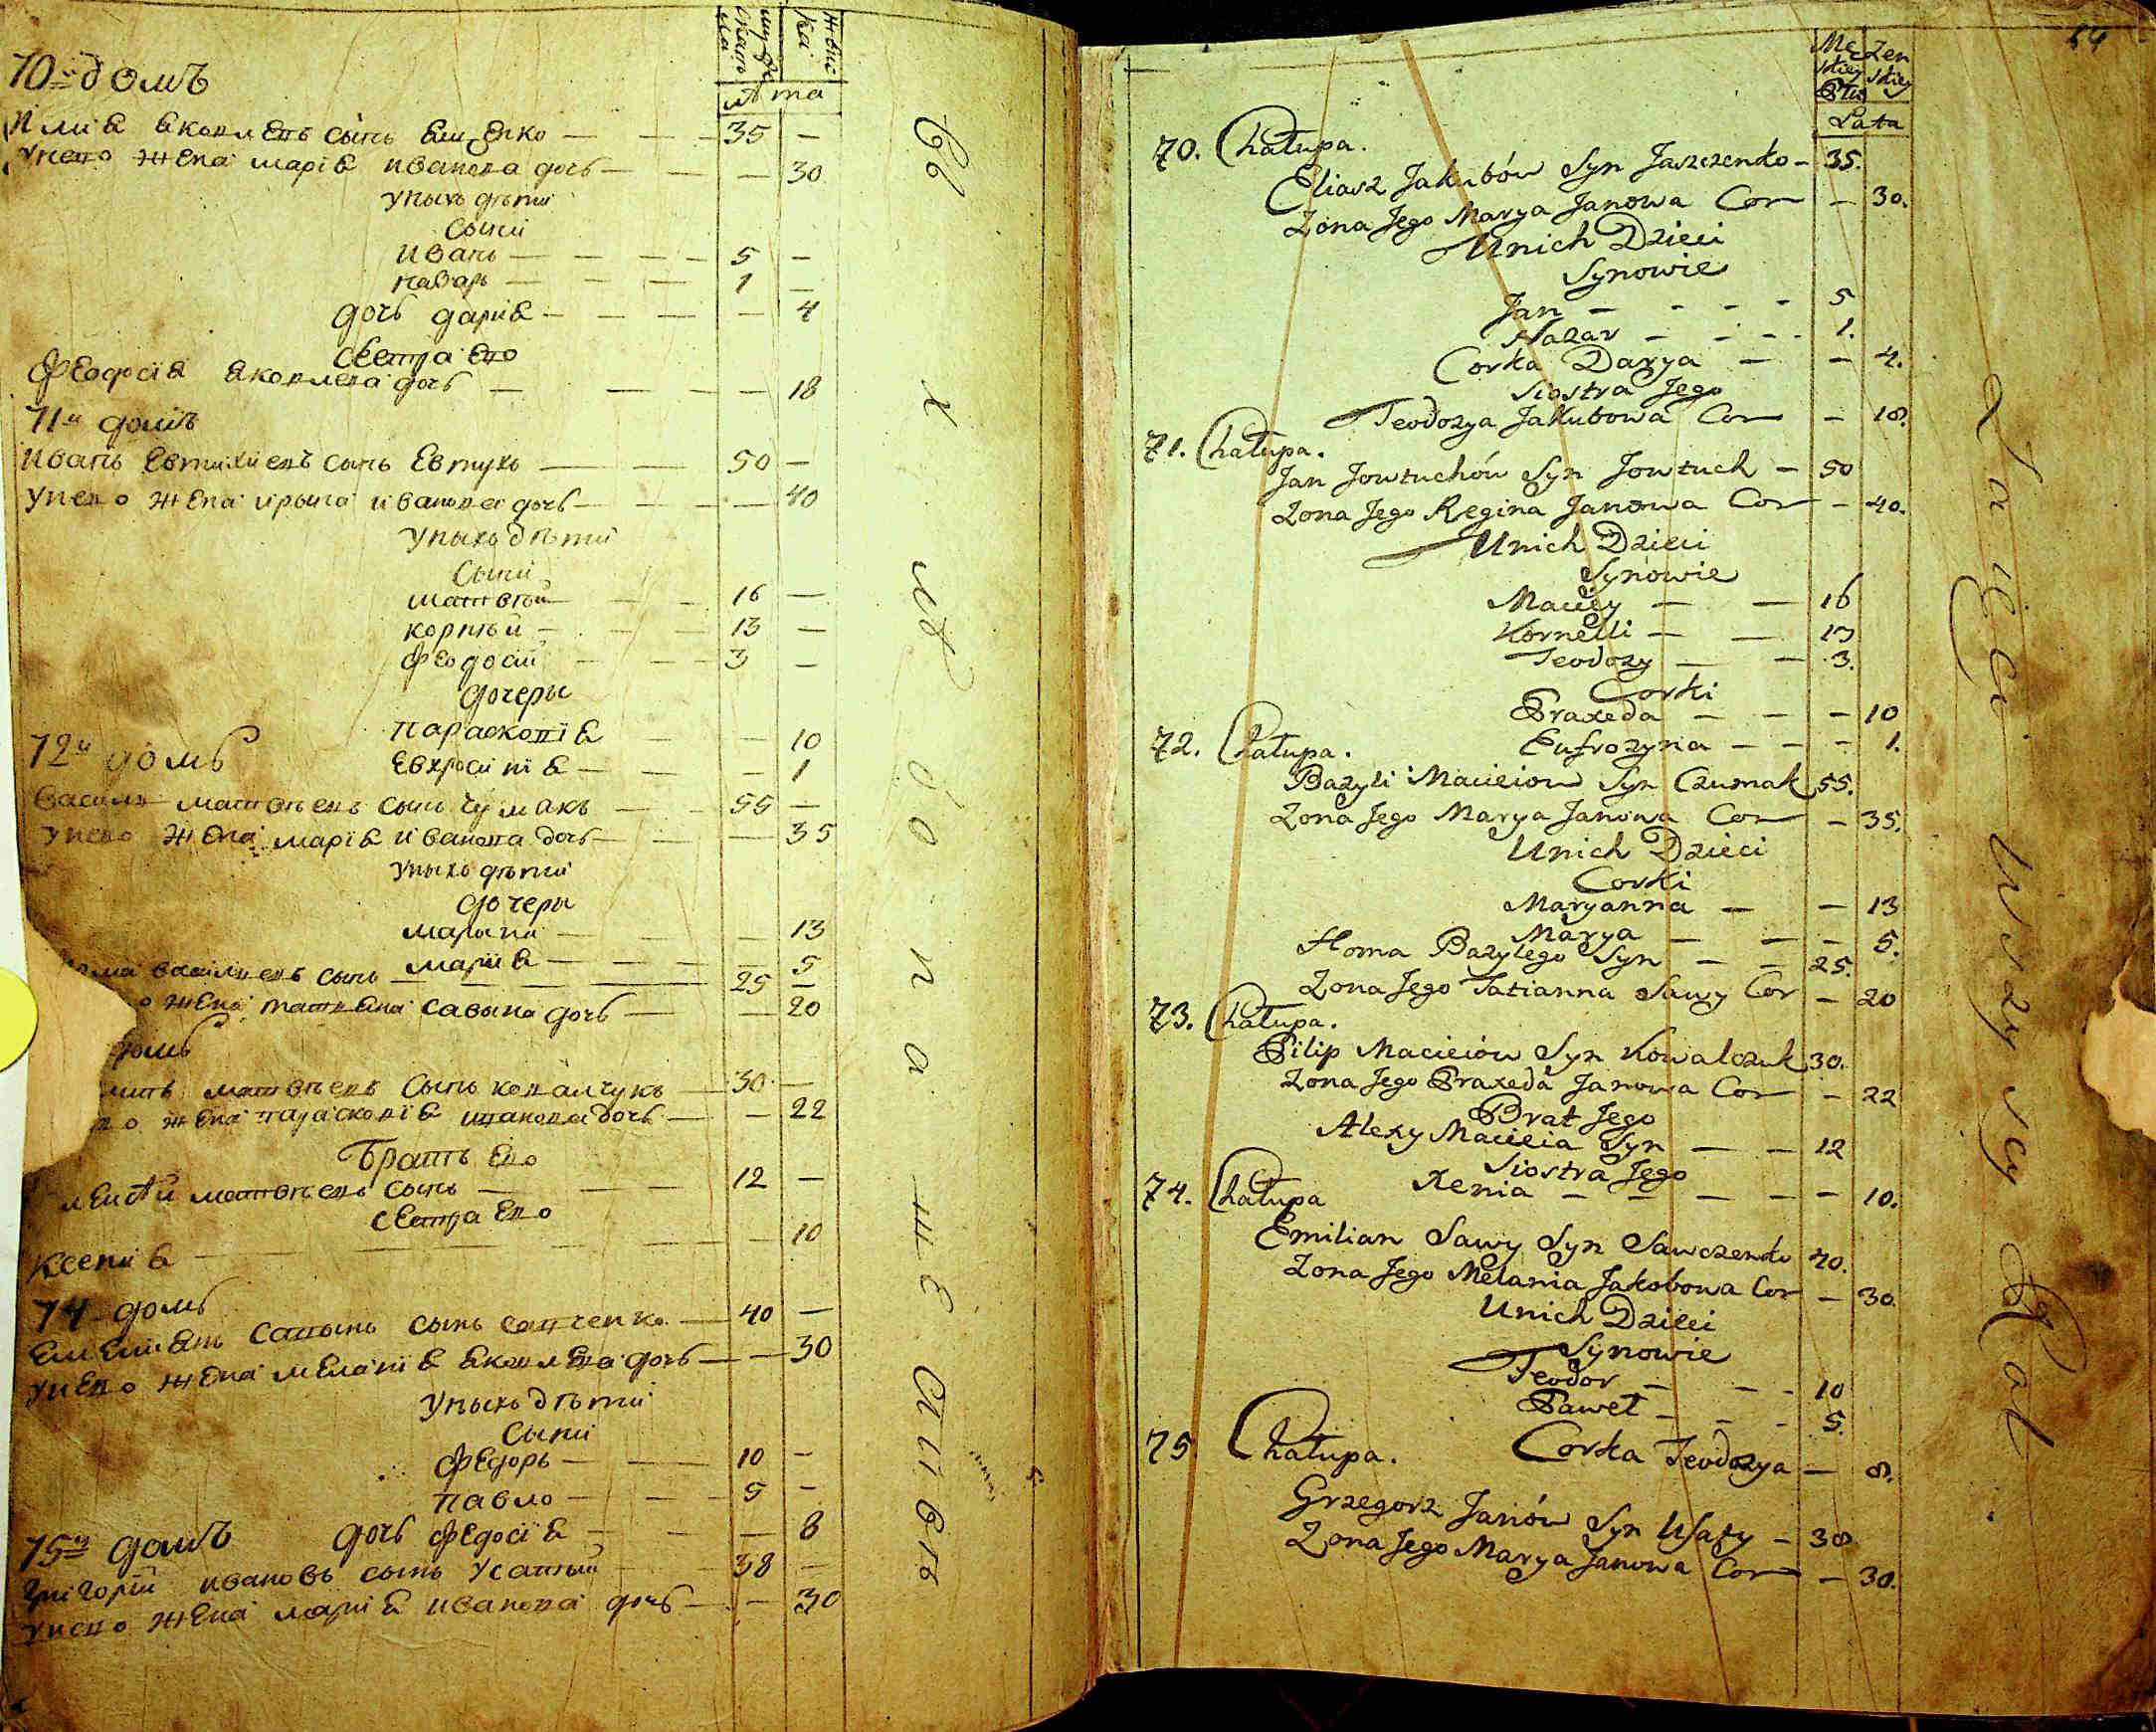 70й домъ
мужеска
женскаі
лѣта
илиа аковлевъ сынъ ащенко — 35 —
унего жена мариа иванова дочь — — 30
унихъ дѣти
сыни
иванъ — 5 —
назаръ — 1 —
дочь дариа — — 4
сестра его
феодосиа аковлева дочь — — 18
71й домъ
иванъ евтихиевъ сынъ евтухъ — 50 —
унего жена ирына иванова дочь — — 40
уныхъ дѣти
сыни
матвѣй — 16 —
корнѣй — 13 —
феодосий — 3 —
дочеры
парасковиа — — 10
евхросиниа — — 1
72й домъ
василь матвѣевъ сынъ чумакъ — 55 —
унего жена мариа иванова дочь — — 35
уныхъ дѣти
дочеры
марына — — 13
мариа — — 5
васильевъ сынъ — 25 —
жена татиана савына дочь — — 20
домъ
матвѣевъ сынъ ковалчукъ — 30 —
жена парасковиа иванова дочь — — 22
братъ его
матвѣевъ сынъ — 12 —
сестра его
ксениа — — 10
74 домъ
емелианъ савынъ сынъ савченко — 40 —
унего жена меланиа аковлева дочь — — 30
уныхъ дѣти
сыни
федоръ — 10 —
павло — 5 —
дочь федосиа — — 8
75й домъ
григорий ивановъ сынъ усатый — 38 —
унего жена мариа иванова дочь — — 30
64
Męzkiey Płci
Żenskiey
Lata
70. Chałupa.
Eliasz Jakubów Syn Jaszczenko — 35.
Zona Jego Marya Janowa Cor — 30.
Unich Dzieci
Synowie
Jan — 5
Nazar — 1.
Corka Darya — 4.
Siostra Jego
Teodozya Jakubowa Cor — 18.
71. Chałupa.
Jan Jowtuchów Syn Jowtuch — 50
Zona Jego Regina Janowa Cor — 40.
Unich Dzieci
Synowie
Maciey — 16
Kornelli — 13
Teodozy — 3.
Corki
Praxeda — 10
Eufrozyna — 1.
72. Chałupa.
Bazyli Macieiow Syn Czumak 55.
Zona Jego Marya Janowa Cor — 35.
Unich Dzieci
Corki
Maryanna — 13
Marya — 5.
Homa Bazylego Syn — 25.
Zona Jego Tatianna Sawy Cor — 20
73. Chałupa.
Filip Macieiów Syn Kowalczuk 30.
Zona Jego Praxeda Janowa Cor — 22
Brat Jego
Alexy Macieia Syn — 12
Siostra Jego
Xenia — 10.
74. Chałupa
Emilian Sawy Syn Sawczenko 40.
Zona Jego Melania Jakobowa Cor — 30.
Unich Dzieci
Synowie
Teodor — 10
Paweł — 5.
Corka Teodozya — 8.
75. Chałupa.
Grzegorz Janów Syn Usaty — 38
Zona Jego Marya Janowa Cor — 30.